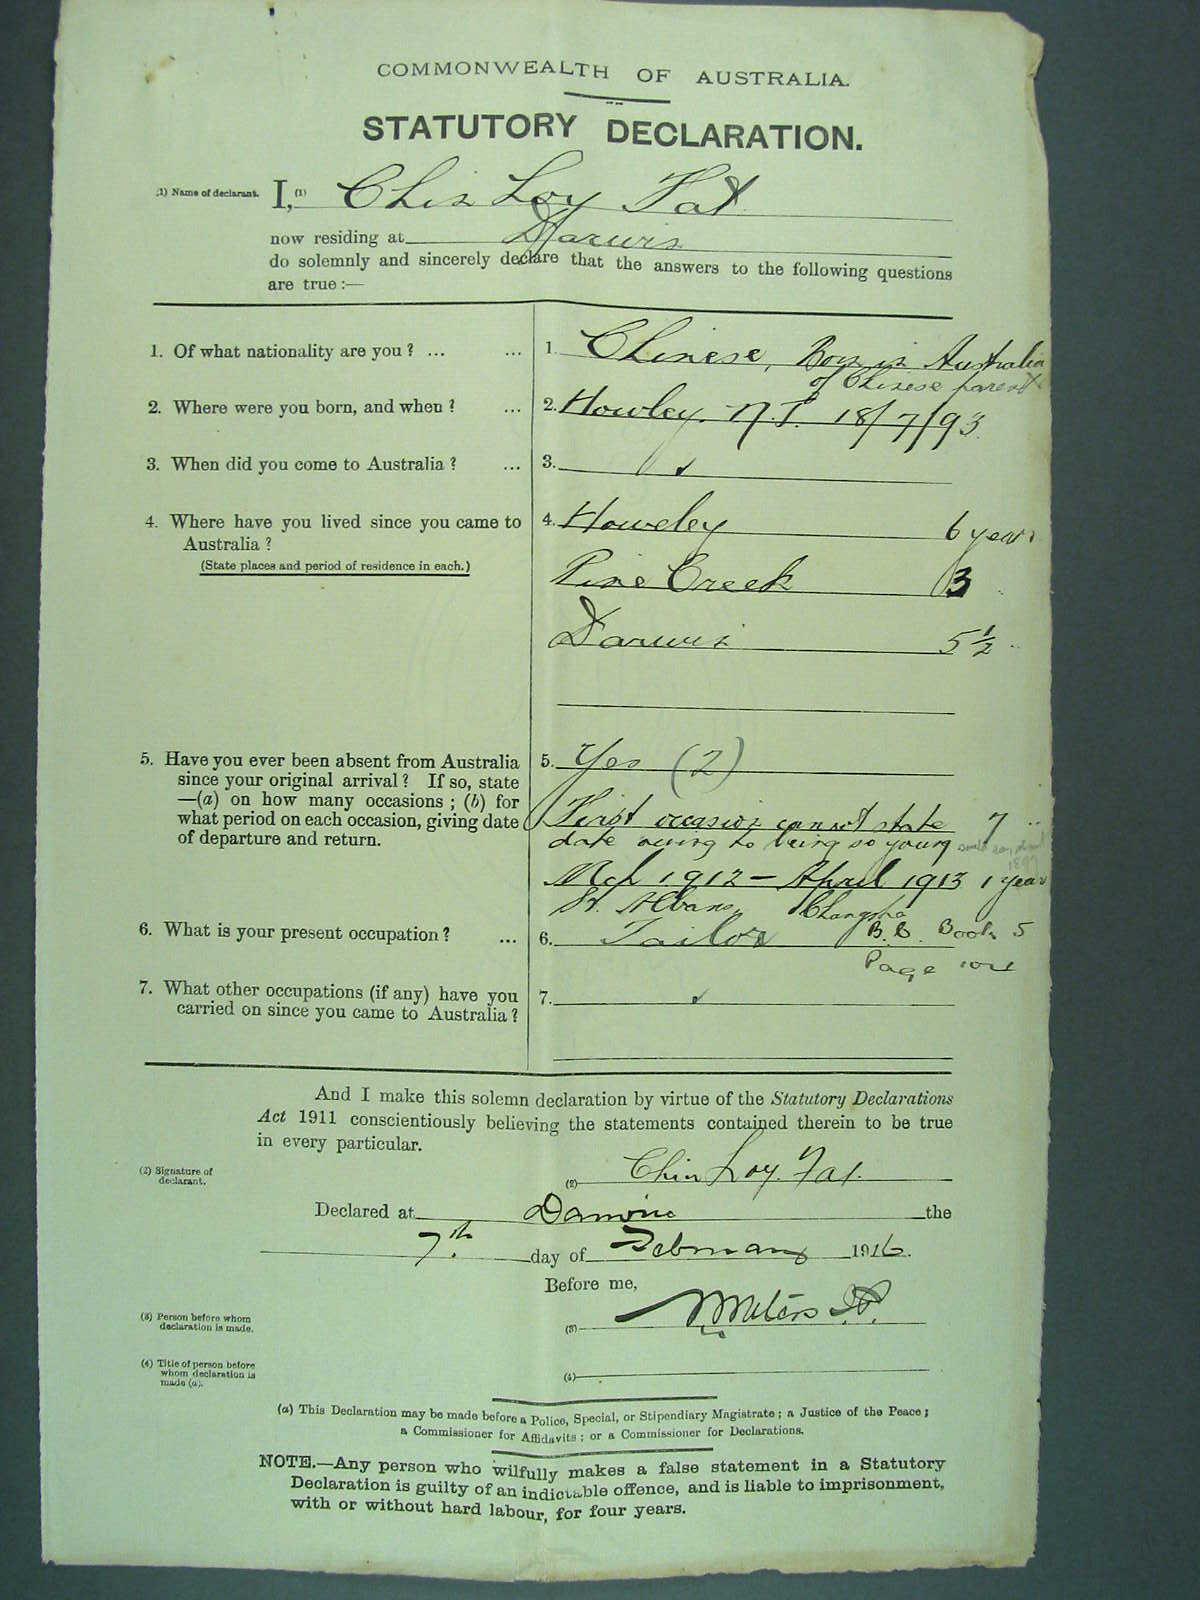 COMMONWEALTH OF AUSTRALIA.
STATUTORY DECLARATION.
(1) Name of declarant. I, (1) Chin Loy Fat
now residing at Darwin
do solemnly and sincerely declare that the answers to the following questions
are true :—
1. Of what nationality are you ? ... ... 1. Chinese, Born in Australia
of Chinese parents
2. Where were you born, and when ? ... 2. Howley. N.T. 18/7/93.
3. When did you come to Australia ? ... 3.
4. Where have you lived since you came to 4. Howley 6 years
Australia ?
(State places and period of residence in each.) Pine Creek 3 "
Darwin 5½ "
5. Have you ever been absent from Australia 5. Yes (2)
since your original arrival ? If so, state
—(a) on how many occasions ; (b) for First occasion cannot state 7 "
what period on each occasion, giving date date owing to being so young
of departure and return.
Mch 1912 – April 1913 1 year
St. Albans, Changsha
6. What is your present occupation ? ... 6. Tailor B.B. Book 5
Page
7. What other occupations (if any) have you 7.
carried on since you came to Australia ?
And I make this solemn declaration by virtue of the Statutory Declarations
Act 1911 conscientiously believing the statements contained therein to be true
in every particular.
(2) Signature of
declarant. (2) Chin Loy Fat.
Declared at Darwin the
7th. day of February 1916.
Before me,
(3) Person before whom
declaration is made. (3) J.P.
(4) Title of person before
whom declaration is
made (a). (4)
(a) This Declaration may be made before a Police, Special, or Stipendiary Magistrate ; a Justice of the Peace ;
a Commissioner for Affidavits ; or a Commissioner for Declarations.
NOTE.—Any person who wilfully makes a false statement in a Statutory
Declaration is guilty of an indictable offence, and is liable to imprisonment,
with or without hard labour, for four years.